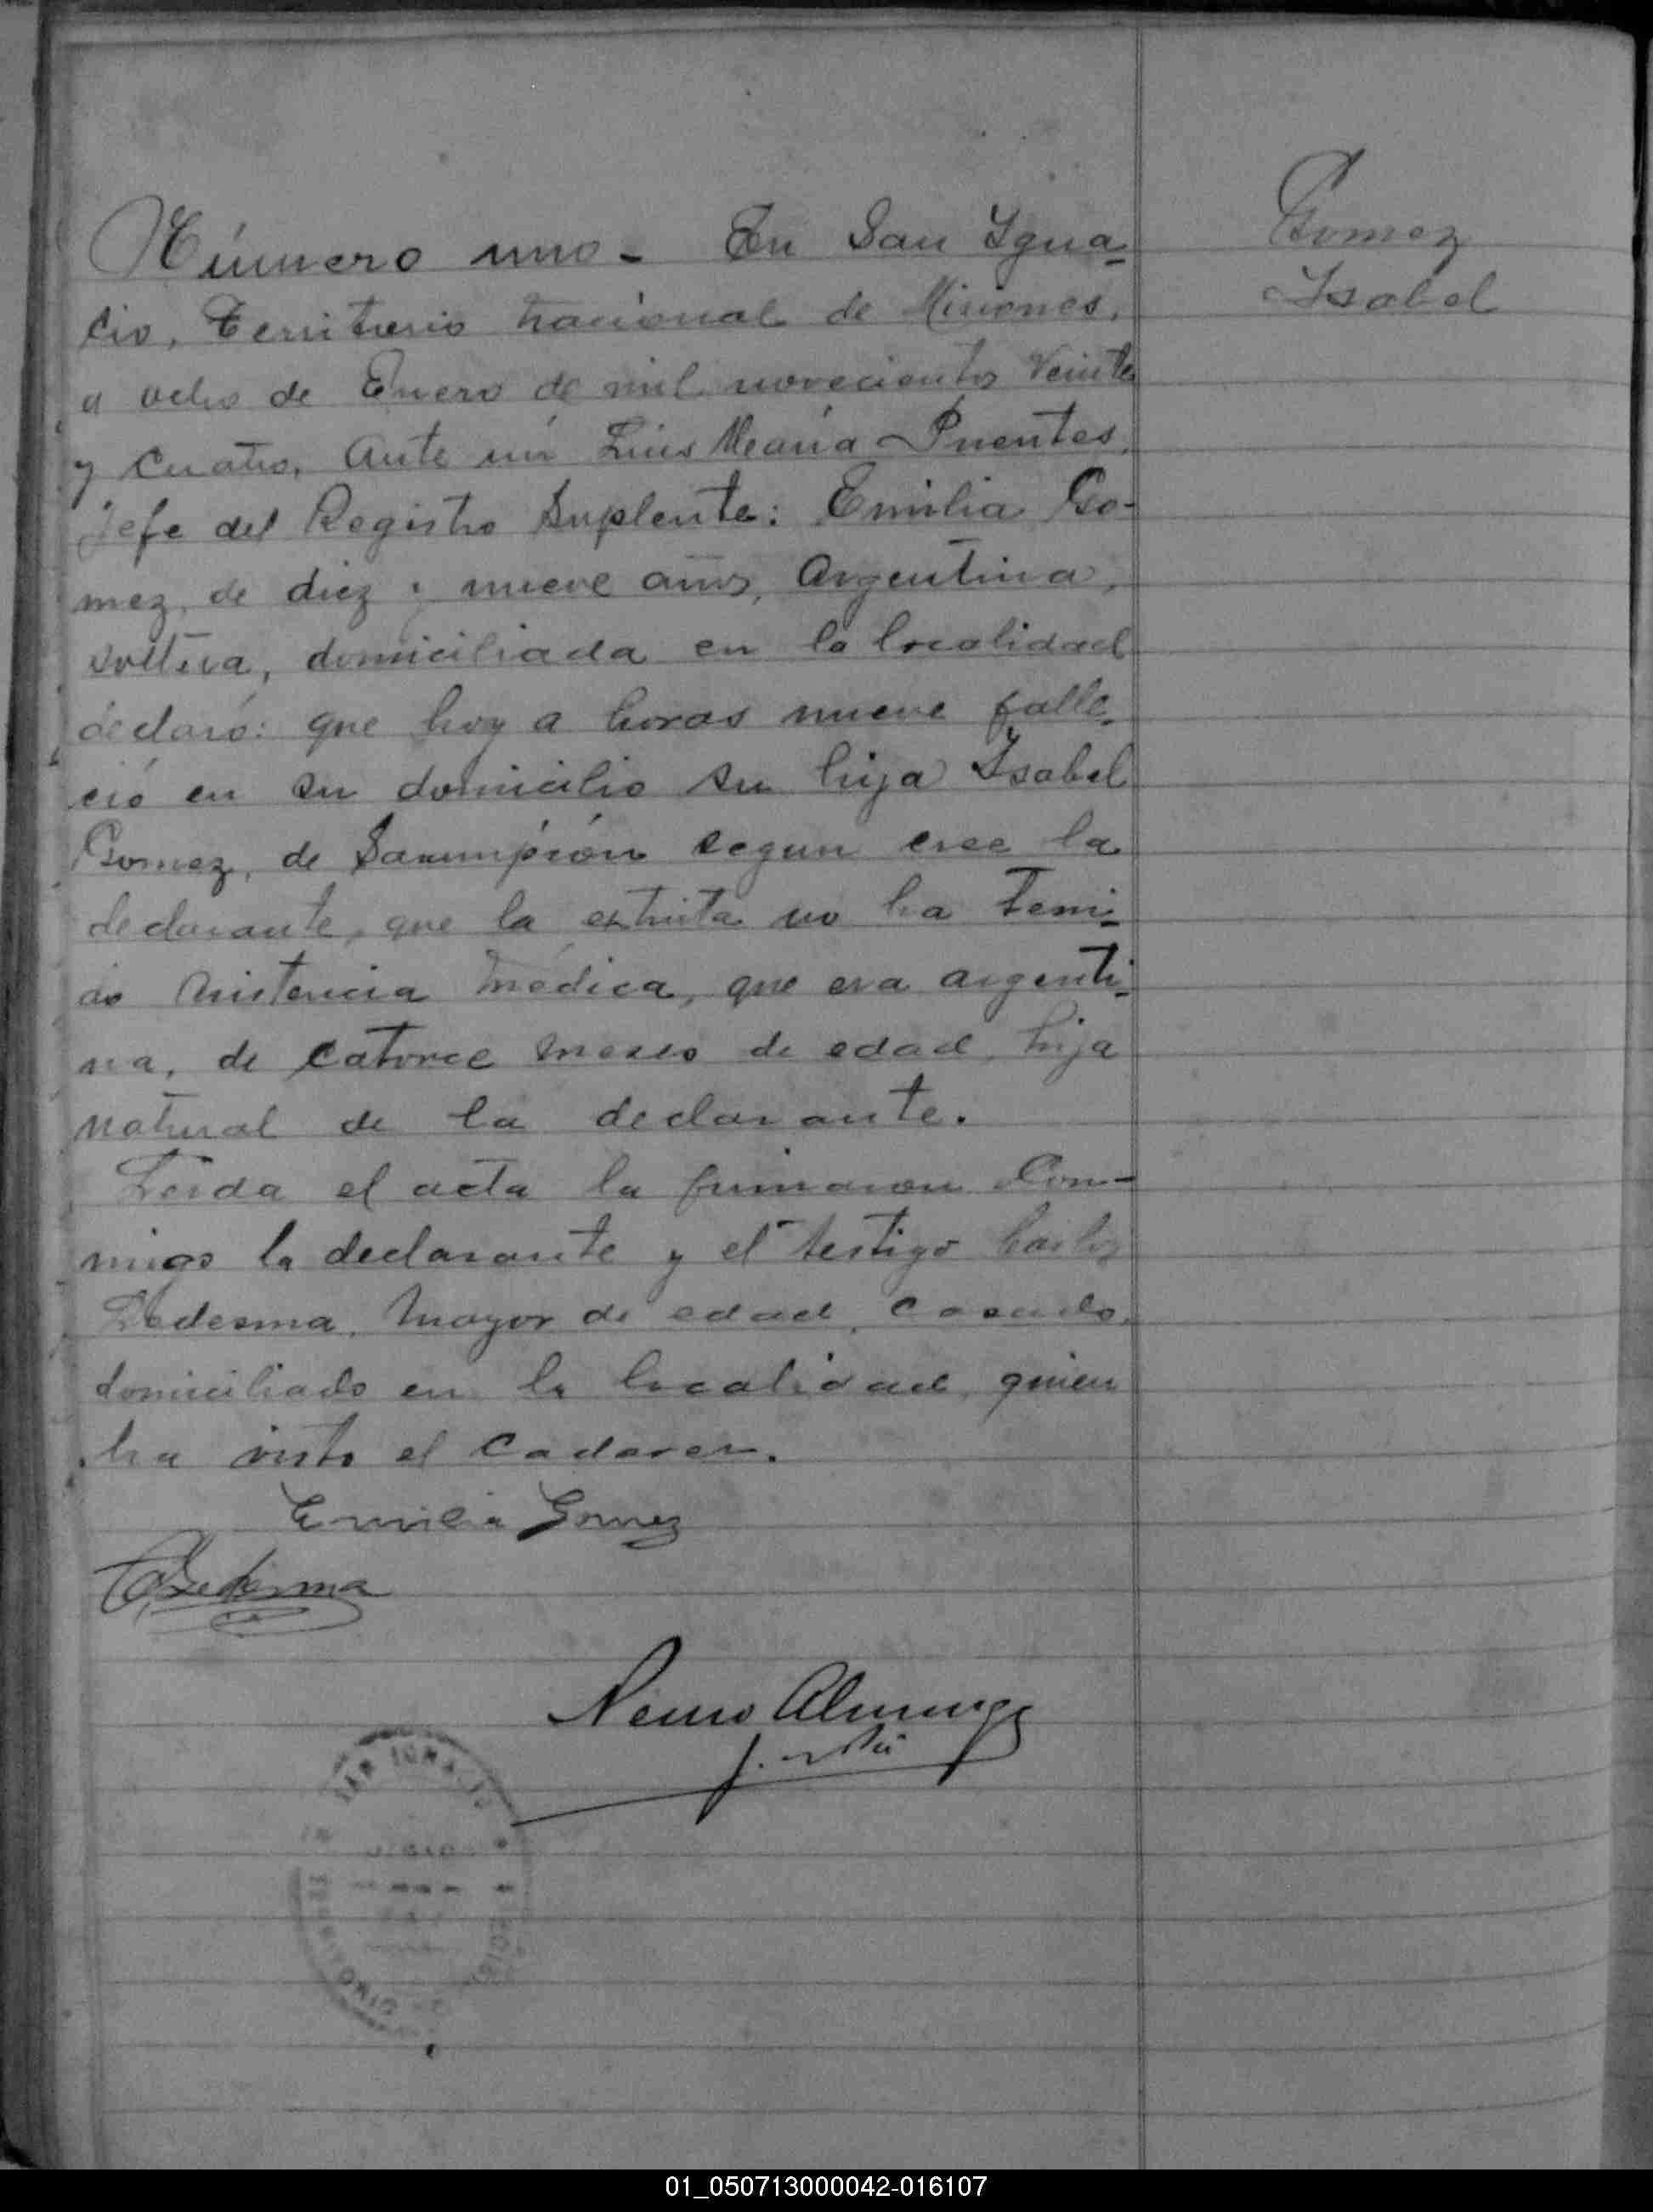 Número uno - En San Igna-
cio, Territorio nacional de Misiones,
a ocho de Enero de mil novecientos Veinte
y Cuatro, Ante mi Luis Maria Puentes,
Jefe del Registro Suplente: Emilia Go-
mez, de diez y nueve años, Argentina,
soltera, domiciliada en la localidad
declaró: que hoy a horas nueve falle-
ció en su domicilio su hija Isabel
Gomez, de Sarampión segun cree la
declarante, que la extinta no ha teni-
do Asistencia médica, que era argenti-
na, de catorce meses de edad, hija
natural de la declarante.
Leida el acta la firmaron Con-
migo la declarante y el testigo Carlos
Ledesma, Mayor de edad, casado,
domiciliado en la localidad, quien
ha visto el Cadaver.
Emilia Gomez
C Ledesma
Gomez
Isabel
SAN IGNACIO
01_050713000042-016107